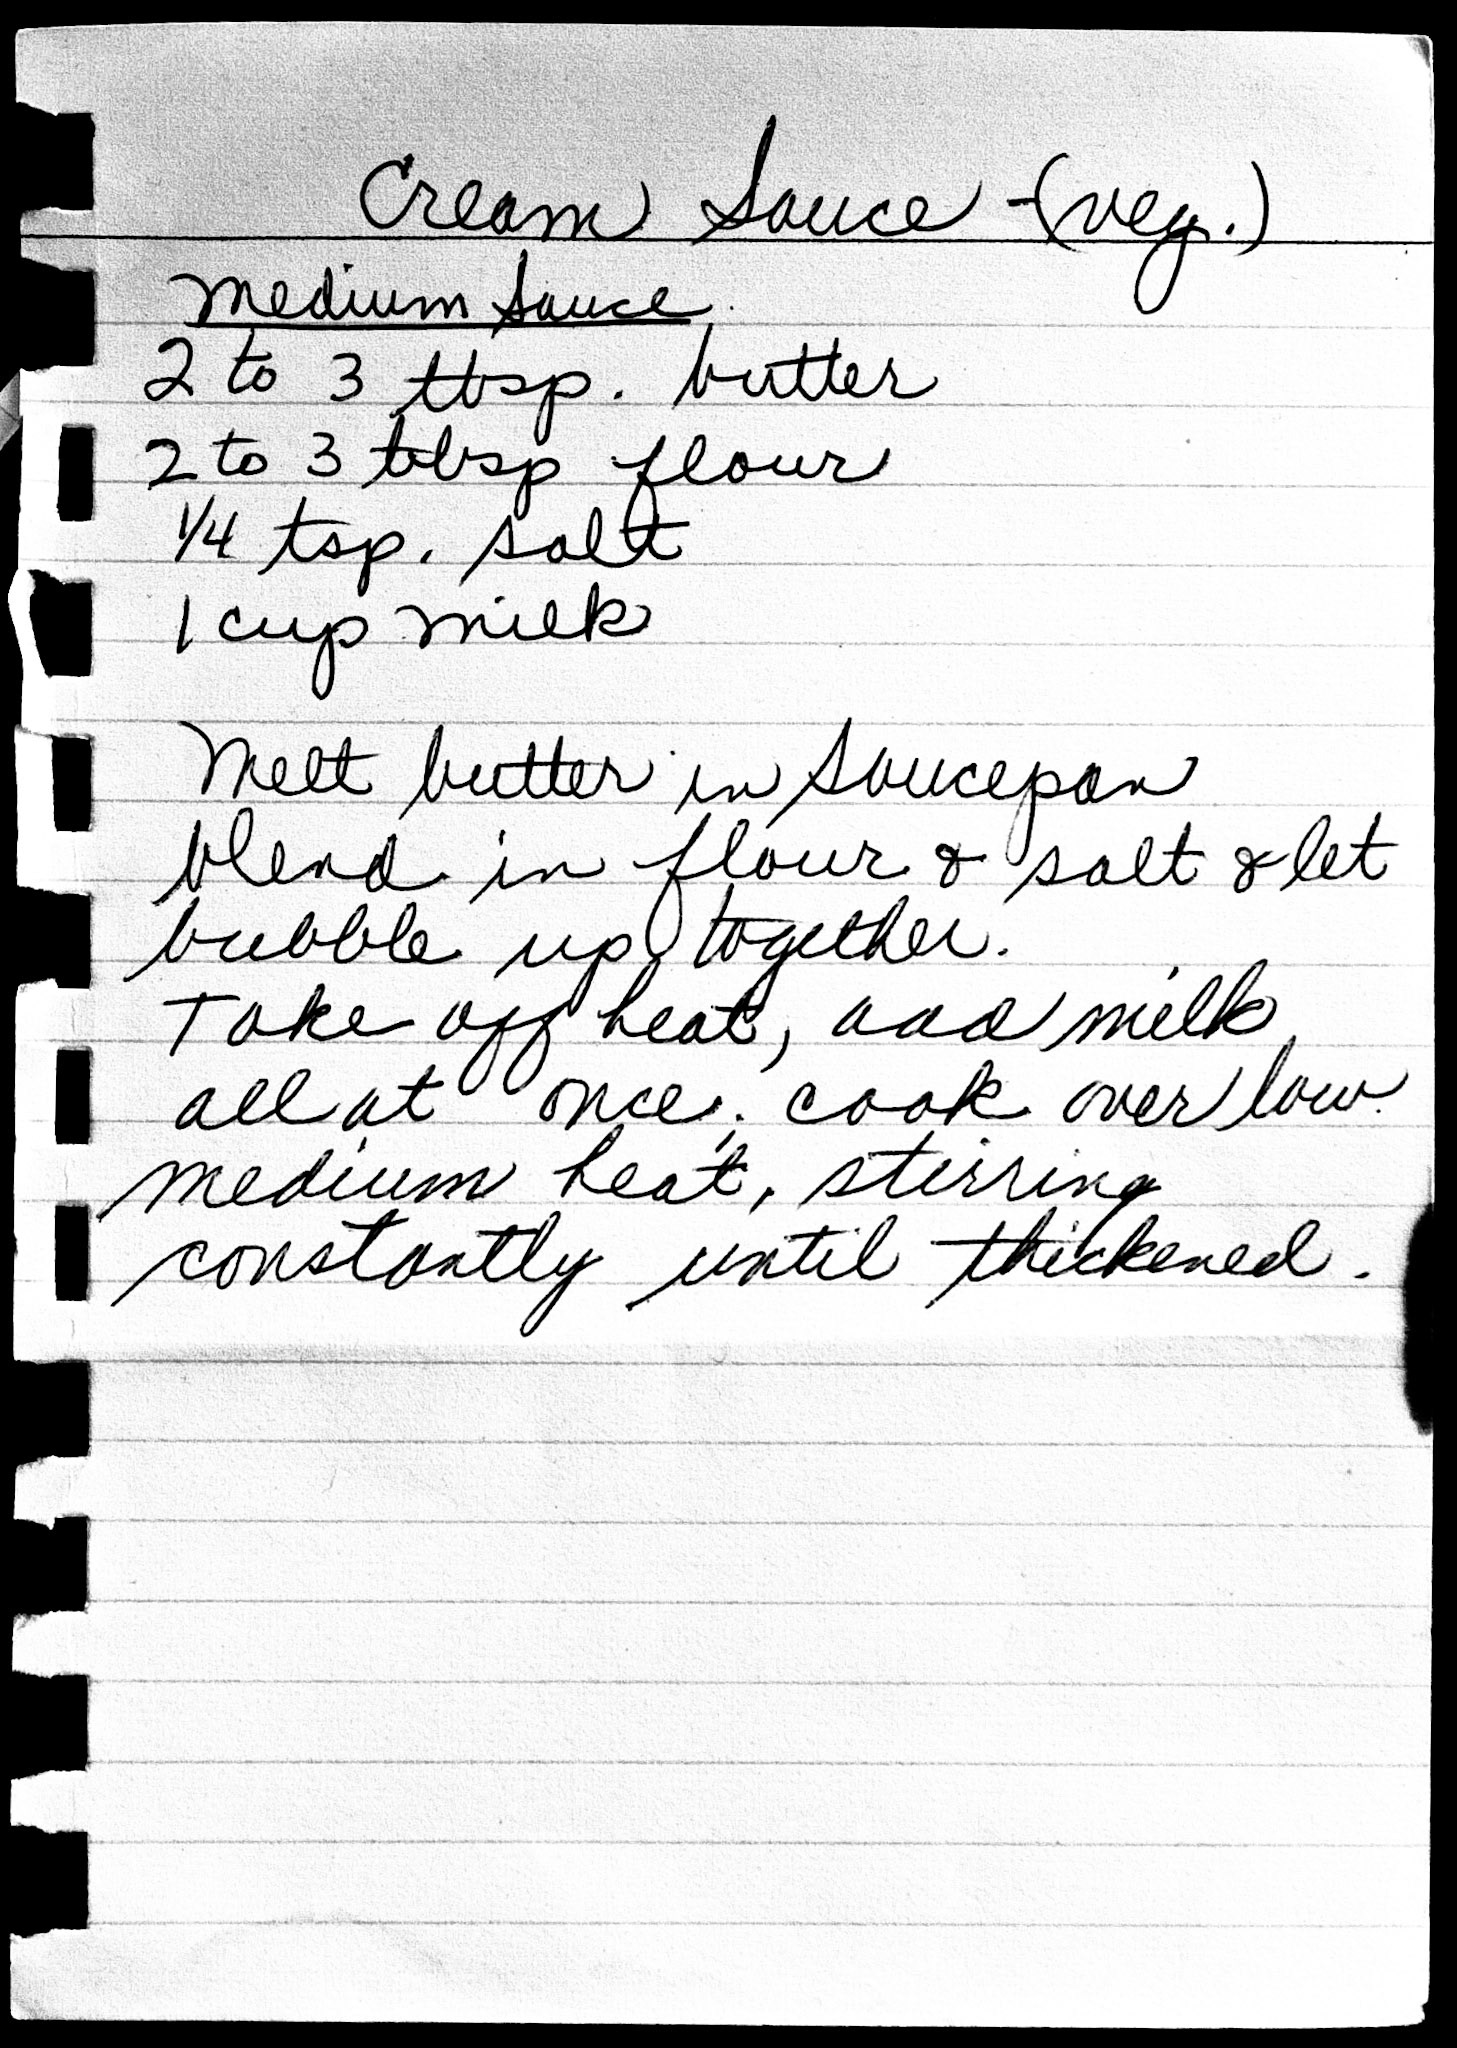 Cream Sauce - (veg.)
Medium Sauce
2 to 3 tbsp. butter
2 to 3 tbsp flour
1/4 tsp. salt
1 cup milk
Melt butter in saucepan
blend in flour & salt & let
bubble up together.
Take off heat, add milk
all at once; cook over low
medium heat, stirring
constantly until thickened.